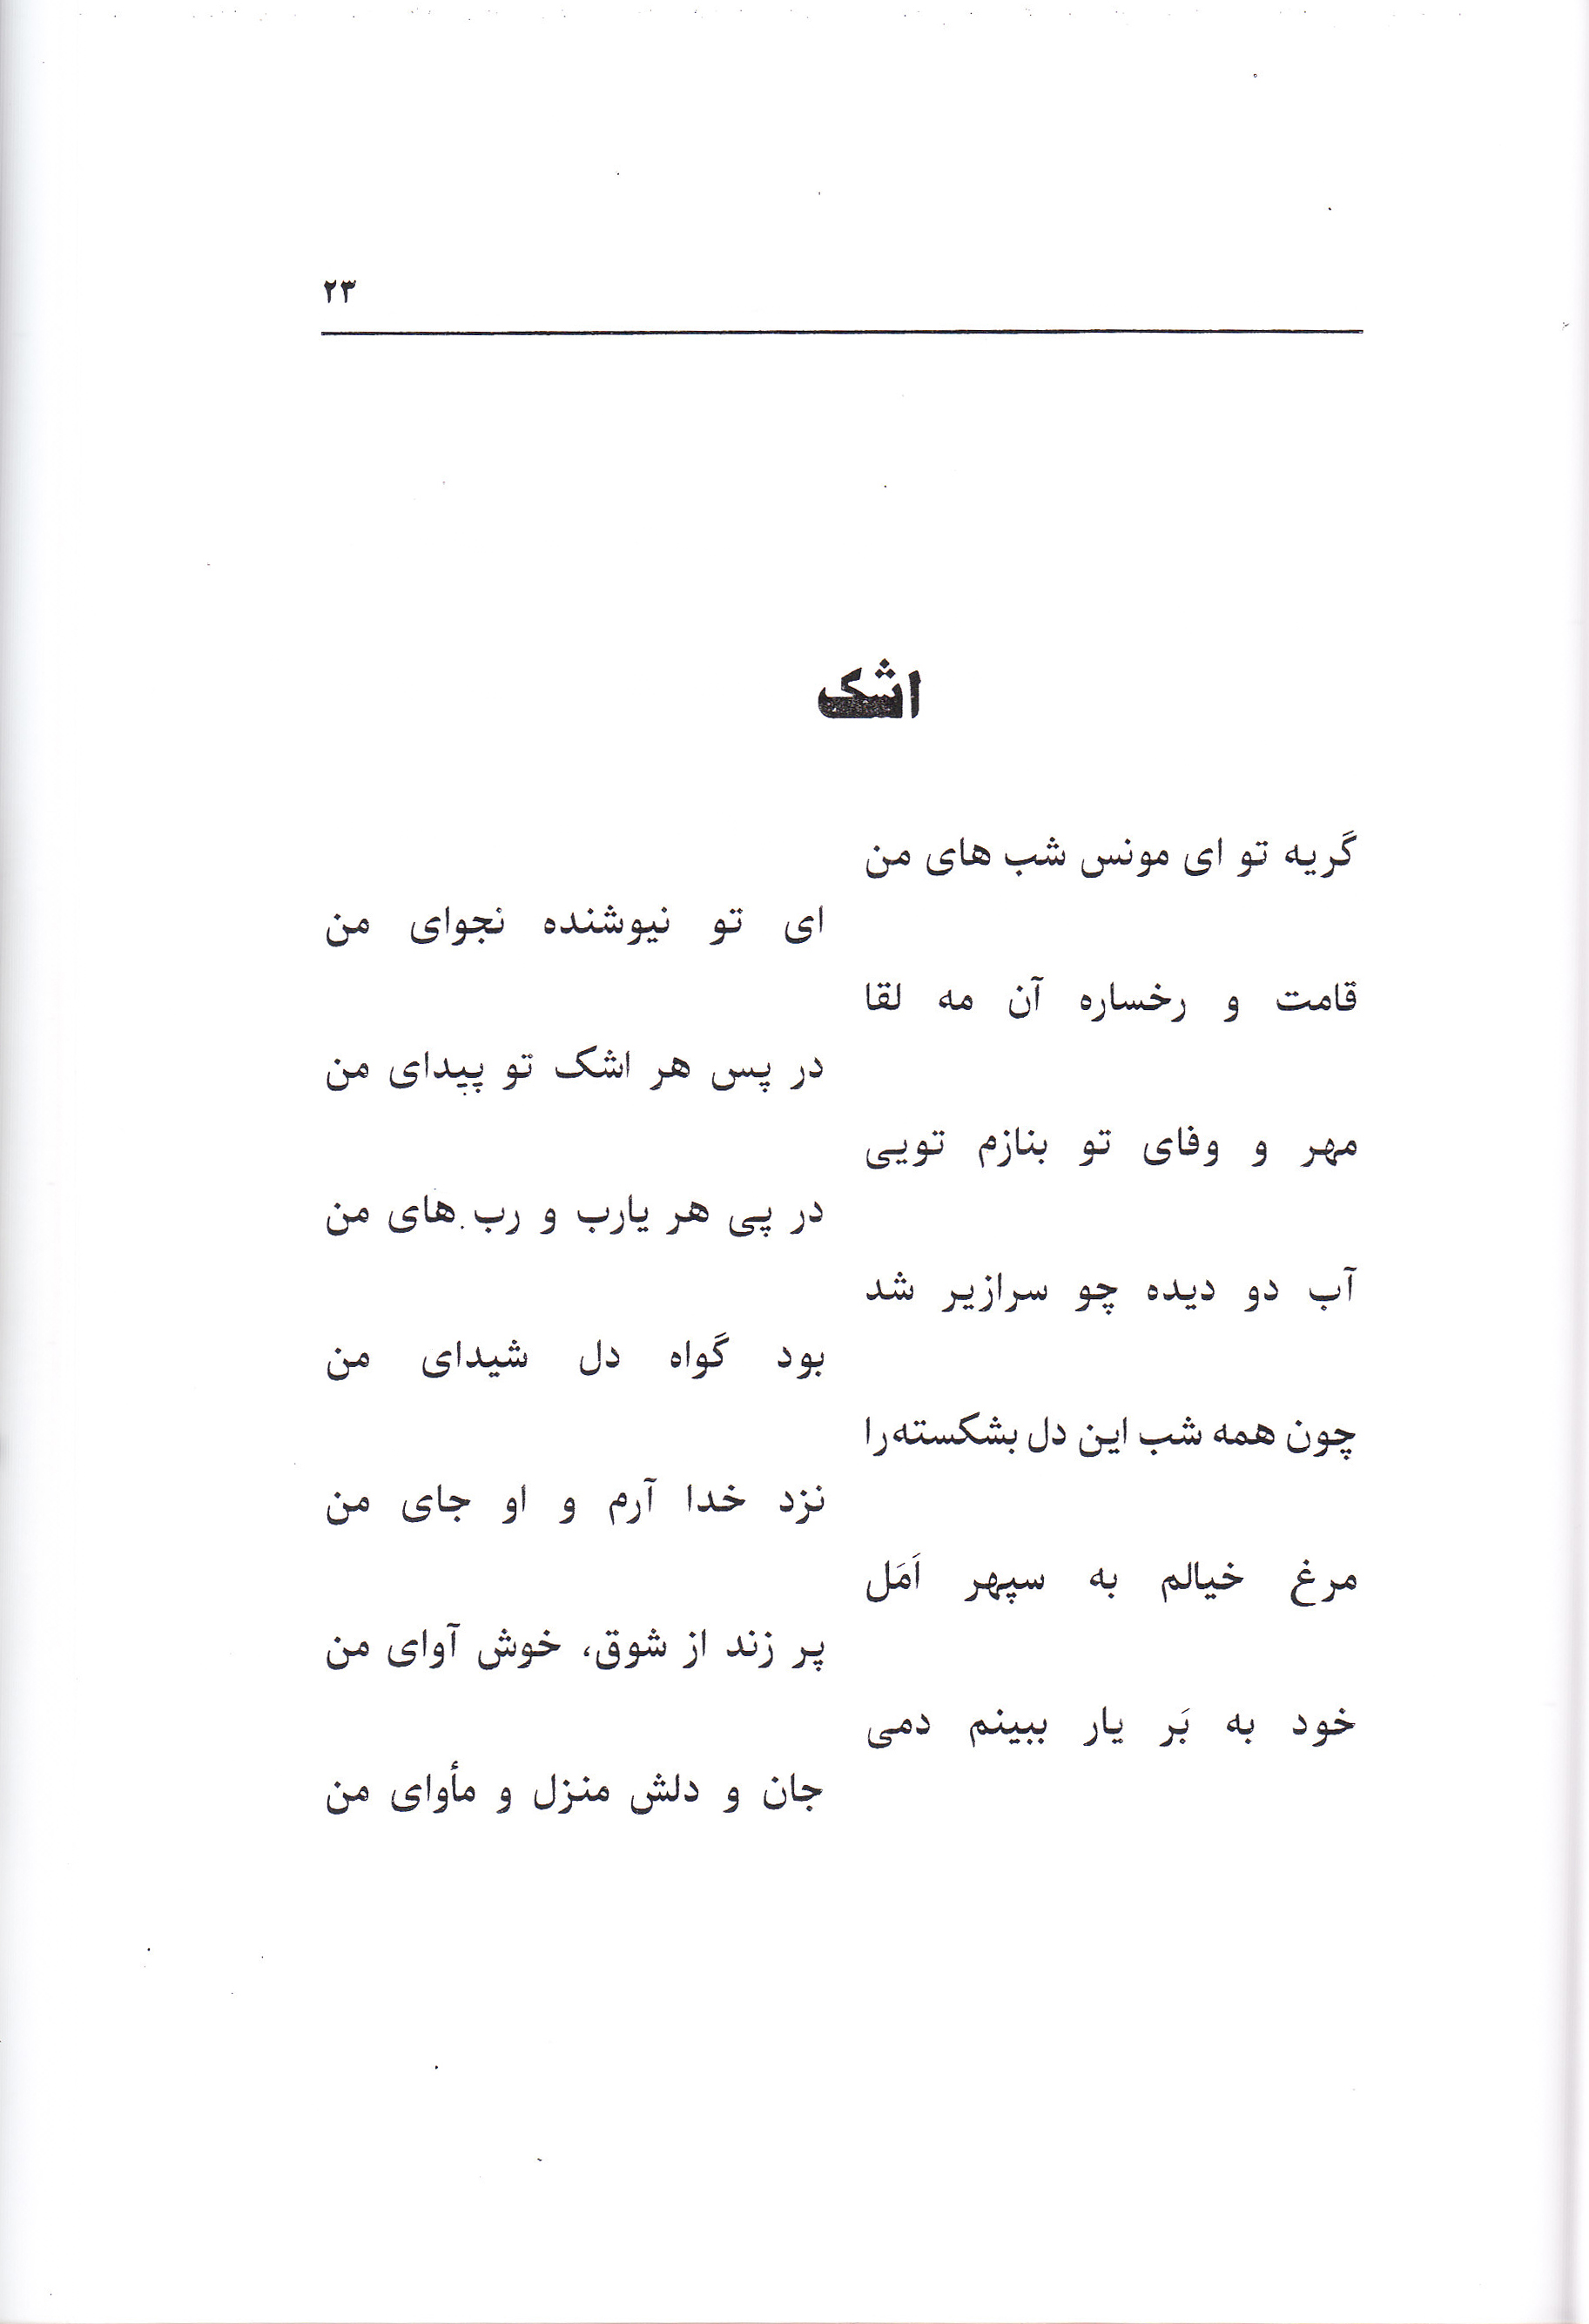 ۲۳
اشک
گریه تو ای مونس شب های من
ای تو نیوشنده نجوای من
قامت و رخساره آن مه لقا
در پس هر اشک تو پیدای من
مهر و وفای تو بنازم تویی
در پی هر یارب و رب های من
آب دو دیده چو سرازیر شد
بود گواه دل شیدای من
چون همه شب این دل بشکسته را
نزد خدا آرم و او جای من
مرغ خیالم به سپهر اَمَل
پر زند از شوق، خوش آوای من
خود به بَر یار ببینم دمی
جان و دلش منزل و مأوای من